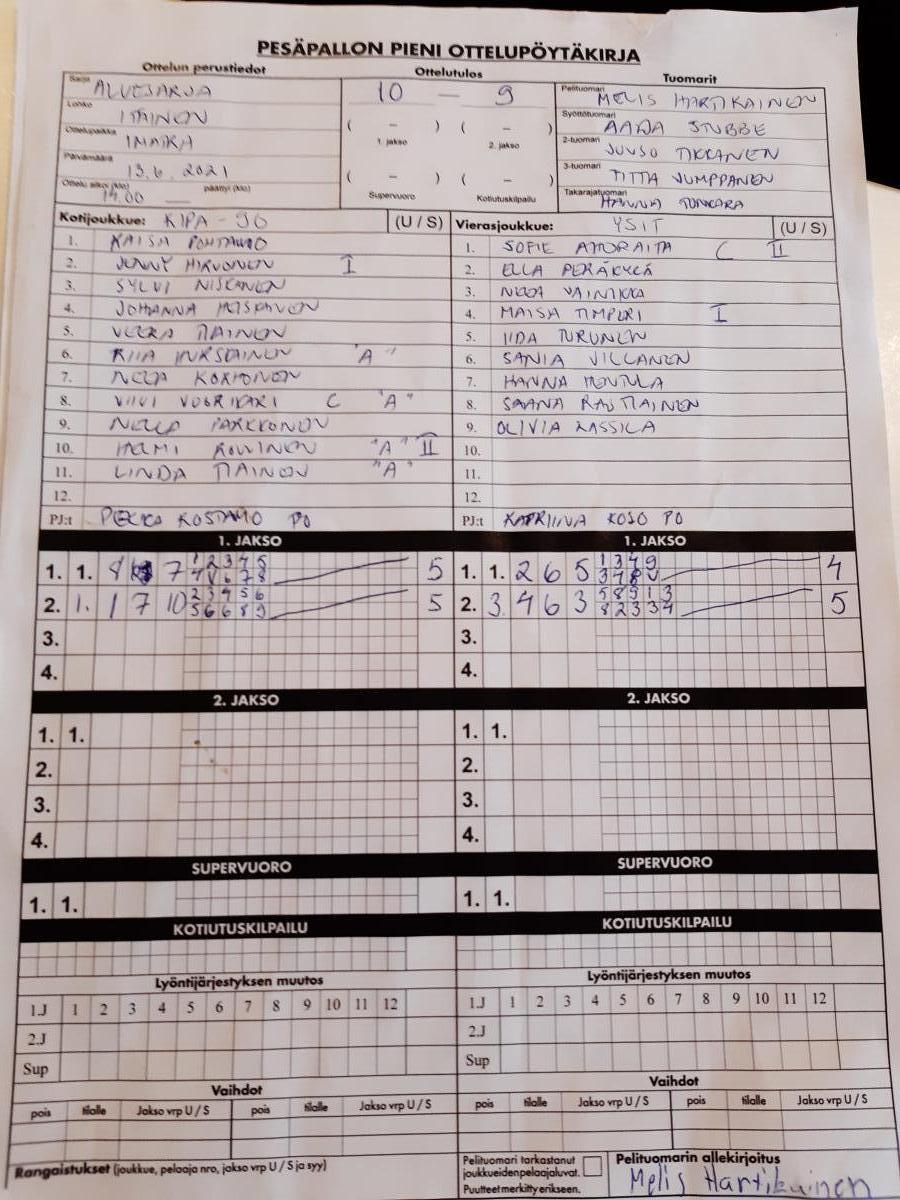 PESÄPALLON PIENI OTTELUPÖYTÄKIRJA
Ottelun perustiedot Ottelutulos Tuomarit
Sarja ALUESARJA 10 — 9 Pelituomari MELIS HARTIKAINEN
Lohko ITÄINEN Syöttötuomari AADA STUBBE
Ottelupaikka IMATRA ( – ) ( – ) 2-tuomari JUUSO TIKKANEN
1. jakso 2. jakso
Päivämäärä 13.6.2021 3-tuomari TITTA JUMPPANEN
Ottelu alkoi (klo) 14.00 päättyi (klo) ( – ) ( – ) Takarajatuomari HANNA
Supervuoro Kotiutuskilpailu
Kotijoukkue: KIPA-90 (U / S) Vierasjoukkue: YSIT (U / S)
1. KAISA 1. SOFIE C II
2. JENNY HIRVONEN I 2. ELLA PERÄKYLÄ
3. SYLVI NISKANEN 3. NEEA VAINIKKA
4. JOHANNA HEISKANEN 4. MAISA TIMPERI I
5. VEERA TIAINEN 5. IIDA TURUNEN
6. KIIA "A" 6. SANIA VILLANEN
7. NEEA KORHONEN 7. HANNA HENTULA
8. VIIVI VUORIKARI C "A" 8. SAANA RAUTIAINEN
9. NELLA PARKKONEN 9. OLIVIA LASSILA
10. HELMI ROVINEN "A" II 10.
11. LINDA TIAINEN "A" 11.
12. 12.
PJ:t PEKKA KOSTAMO PO PJ:t KATRIINA KOSO PO
1. JAKSO 1. JAKSO
1. 1. 8 7 1 2 3 4 5 5 1. 1. 2 6 5 1 3 4 9 4
4 V 6 7 8 3 4 8 V
2. 1. 1 7 10 2 3 4 5 6 5 2. 3. 4 6 3 5 8 9 1 3 5
5 6 6 8 9 8 2 3 3 4
3. 3.
4. 4.
2. JAKSO 2. JAKSO
1. 1. 1. 1.
2. 2.
3. 3.
4. 4.
SUPERVUORO SUPERVUORO
1. 1. 1. 1.
KOTIUTUSKILPAILU KOTIUTUSKILPAILU
Lyöntijärjestyksen muutos Lyöntijärjestyksen muutos
1.J 1 2 3 4 5 6 7 8 9 10 11 12 1.J 1 2 3 4 5 6 7 8 9 10 11 12
2.J 2.J
Sup Sup
Vaihdot Vaihdot
pois tilalle Jakso vrp U / S pois tilalle Jakso vrp U / S pois tilalle Jakso vrp U / S pois tilalle Jakso vrp U / S
Rangaistukset (joukkue, pelaaja nro, jakso vrp U / S ja syy) Pelituomari tarkastanut Pelituomarin allekirjoitus
joukkueidenpelaajaluvat.
Puutteet merkitty erikseen. Melis Hartikainen